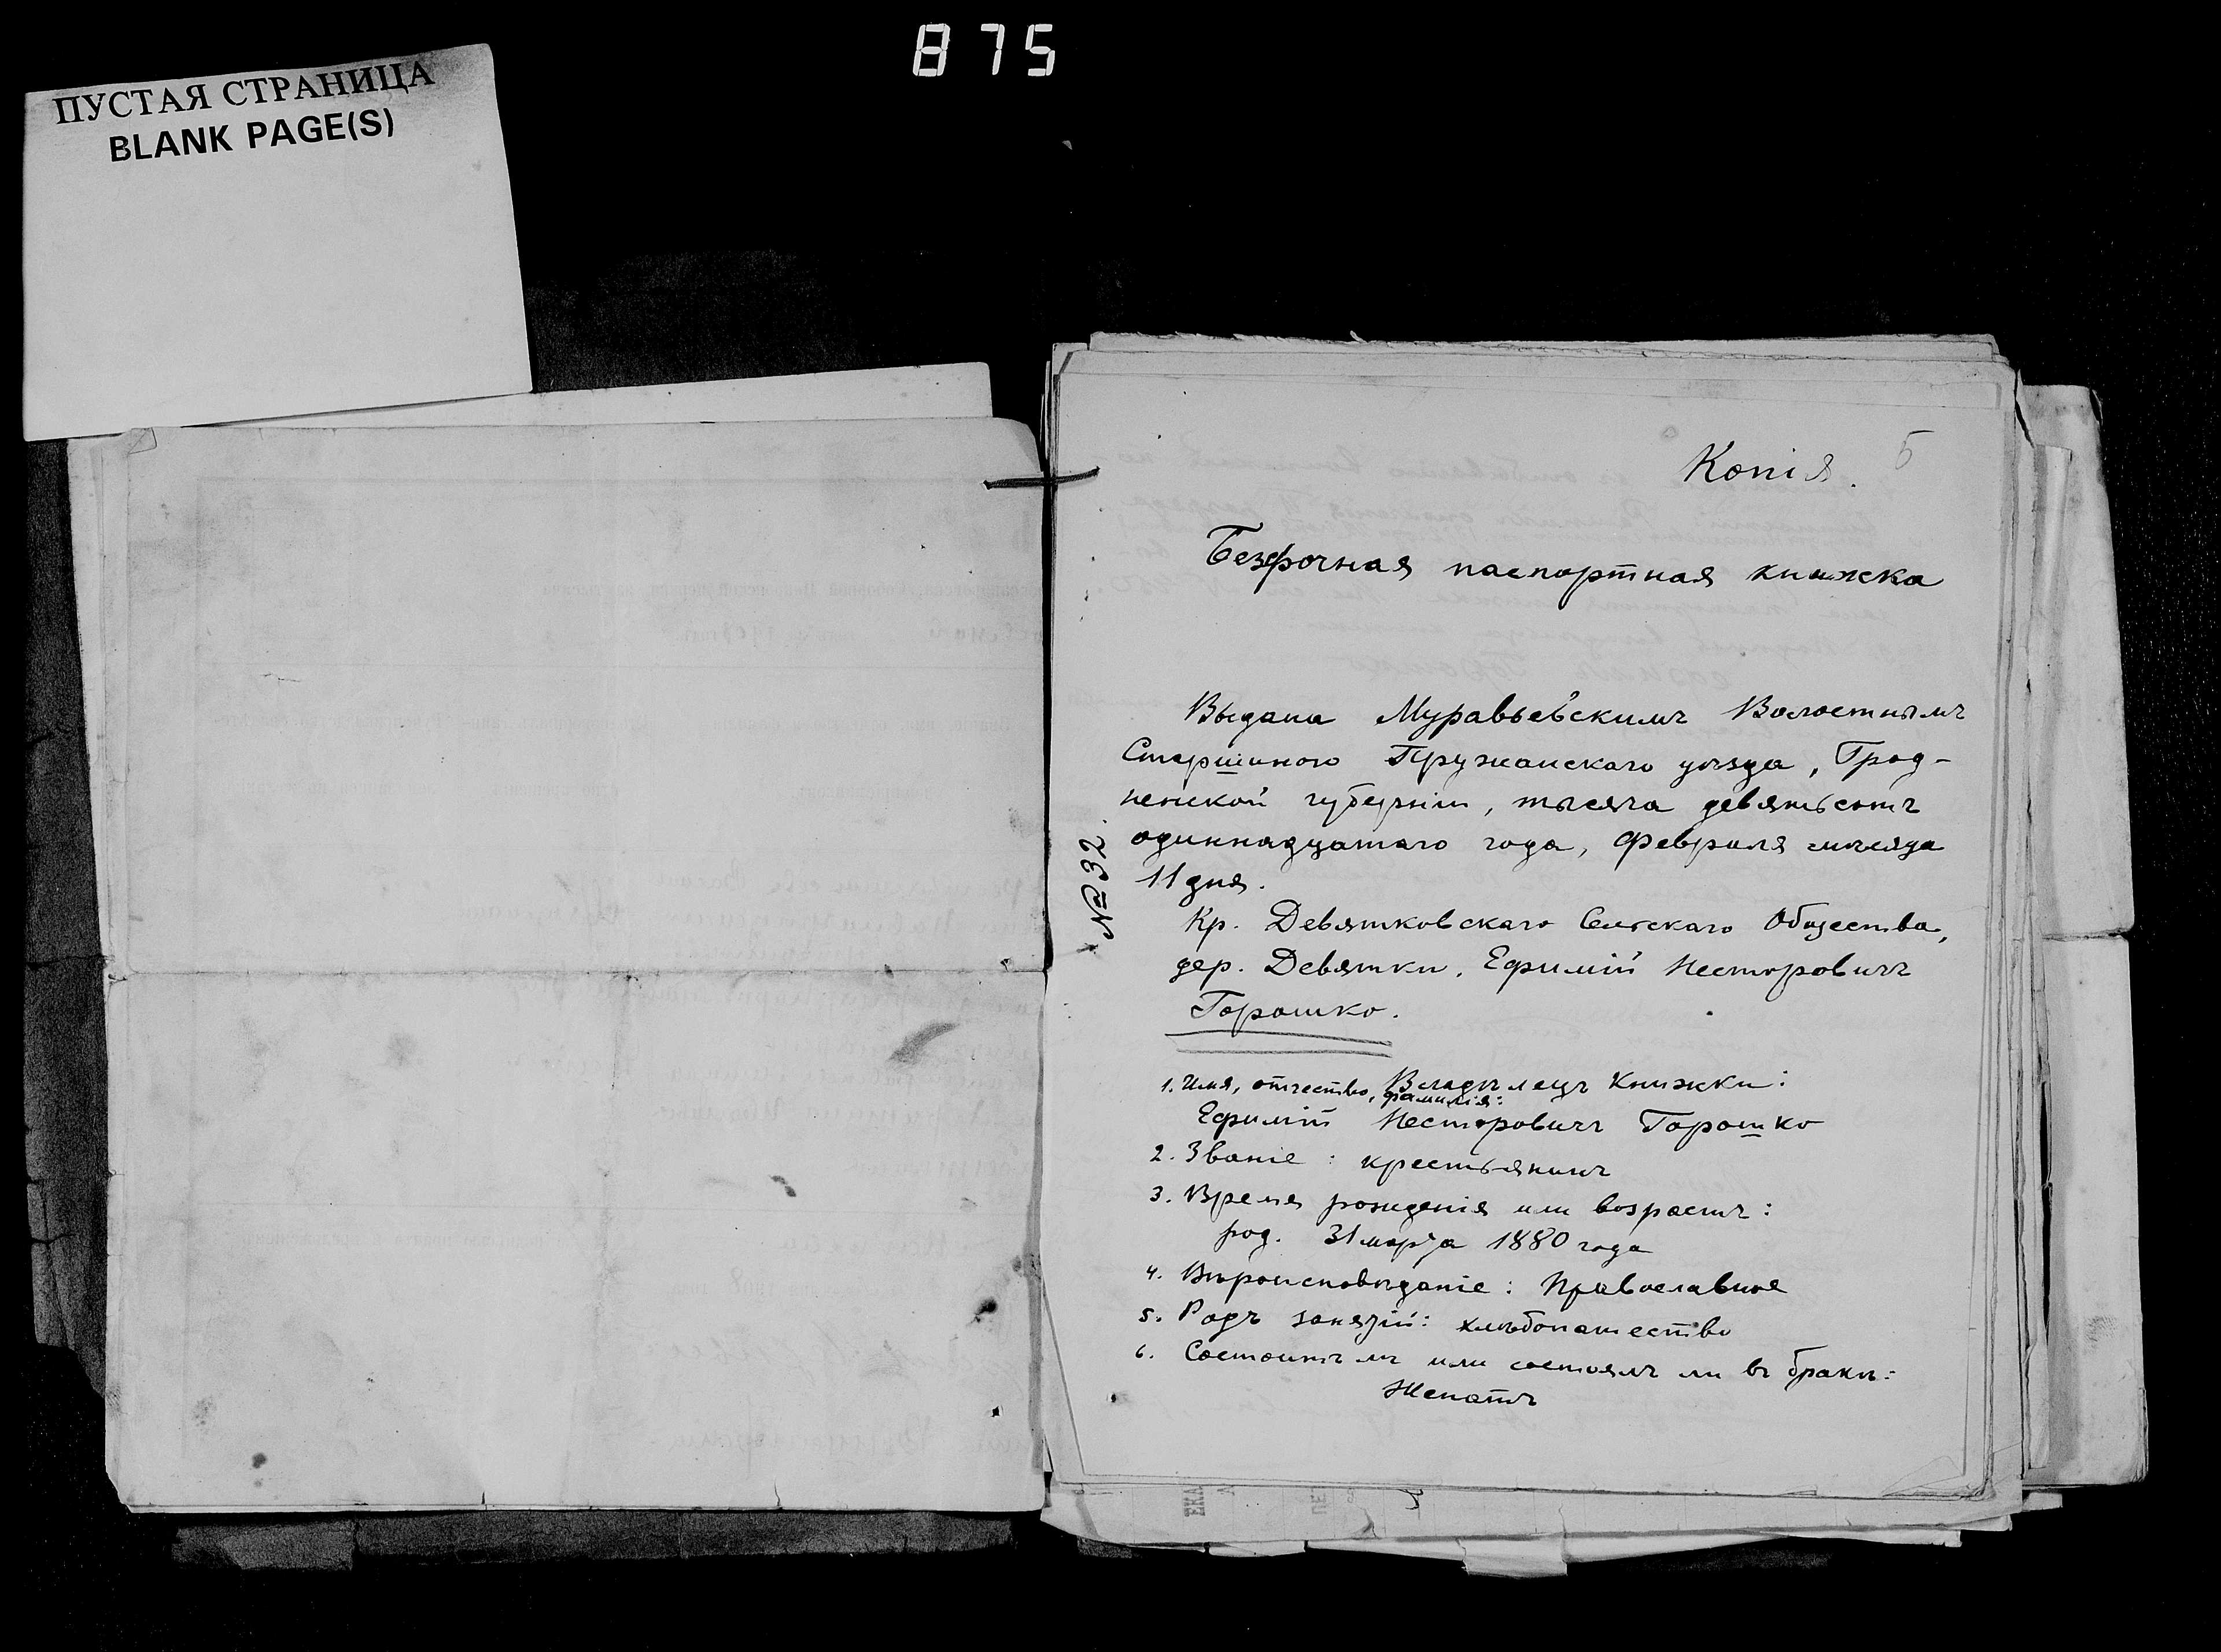 875
ПУСТАЯ СТРАНИЦА
BLANK PAGE(S)
Копія.
5
Безсрочная паспортная книжка
Выдана Муравьевскимъ Волостнымъ
Старшиною Пружанскаго уѣзда, Грод-
ненской губерніи, тысяча девятьсотъ
одиннадцатаго года, февраля мѣсяца
11 дня.
№ 32.
Кр. Девятковскаго Сельскаго Общества,
дер. Девятки, Ефимій Несторовичъ
Горошко.
1. Имя, отчество, фамилія: Владѣлецъ книжки:
Ефимій Несторовичъ Горошко
2. Званіе: крестьянинъ
3. Время рожденія или возрастъ:
род. 31 марта 1880 года
4. Вѣроисповѣданіе: Православное
5. Родъ занятій: хлѣбопашество
6. Состоитъ ли или состоялъ ли въ бракѣ:
Женатъ